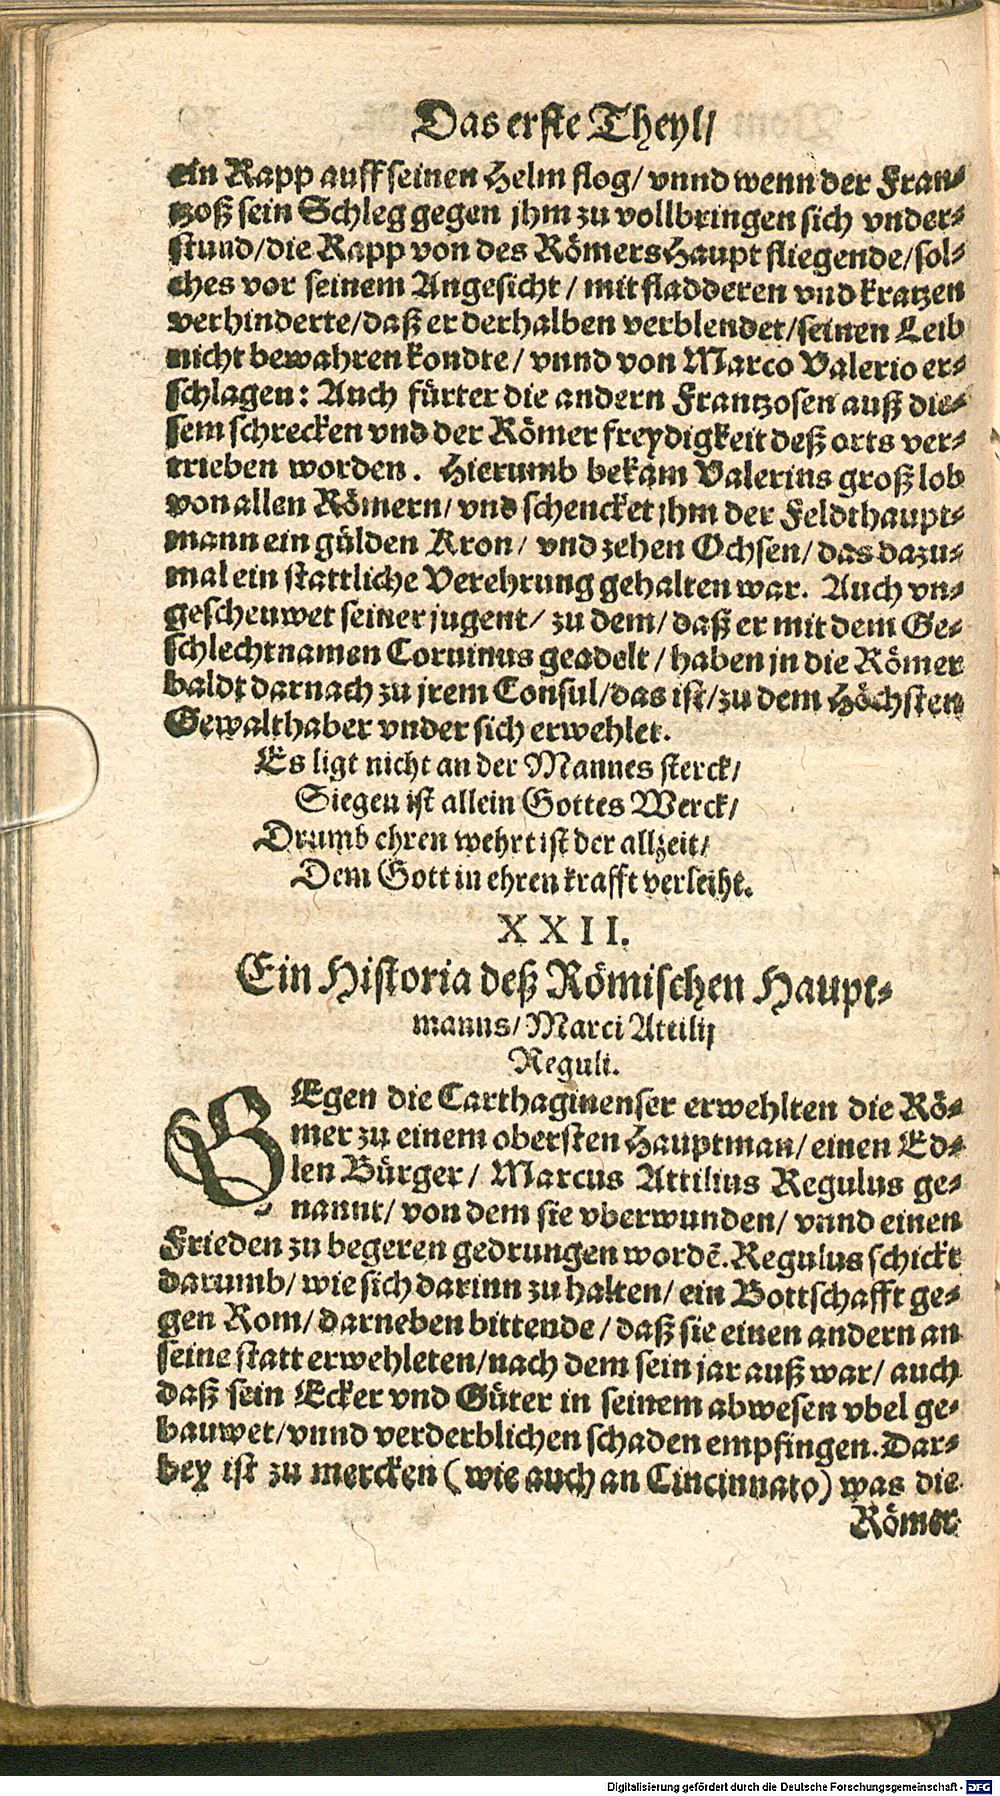 Das erſte Theyl/
ein Rapp auff ſeinen Helm flog/ vnnd wenn der Fran-
tzoß ſein Schleg gegen jhm zu vollbringen ſich vnder-
ſtund/die Rapp von des Römers Haupt fliegende/ſol-
ches vor ſeinem Angeſicht/ mit fladderen vnd kratzen
verhinderte/daß er derhalben verblendet/ſeinen Leib
nicht bewahren kondte/ vnnd von Marco Valerio er-
ſchlagen: Auch fürter die andern Frantzoſen auß die-
ſem ſchrecken vnd der Römer freydigkeit deß orts ver-
trieben worden. Hierumb bekam Valerius groß lob
von allen Römern/ vnd ſchencket jhm der Feldthaupt-
mann ein gülden Kron/ vnd zehen Ochſen/ das dazu-
mal ein ſtattliche Verehrung gehalten war. Auch vn-
geſcheuwet ſeiner jugent/ zu dem/ daß er mit dem Ge-
ſchlechtnamen Coruinus geadelt/ haben jn die Römer
baldt darnach zu jrem Conſul/das iſt/zu dem Höchſten
Gewalthaber vnder ſich erwehlet.
Es ligt nicht an der Mannes ſterck/
Siegen iſt allein Gottes Werck/
Drumb ehren wehrt iſt der allzeit/
Dem Gott in ehren krafft verleiht.
XXII.
Ein Hiſtoria deß Römiſchen Haupt-
manns/ Marci Attilij
Reguli.
GEgen die Carthaginenſer erwehlten die Rö-
mer zu einem oberſten Hauptman/ einen Ed-
len Bürger/ Marcus Attilius Regulus ge-
nannt/ von dem ſie vberwunden/ vnnd einen
Frieden zu begeren gedrungen wordẽ. Regulus ſchickt
darumb/ wie ſich darinn zu halten/ ein Bottſchafft ge-
gen Rom/ darneben bittende/ daß ſie einen andern an
ſeine ſtatt erwehleten/nach dem ſein jar auß war/ auch
daß ſein Ecker vnd Güter in ſeinem abweſen vbel ge-
bauwet/vnnd verderblichen ſchaden empfingen. Dar-
bey iſt zu mercken (wie auch an Cincinnato) was die
Römer
Digitalisierung gefördert durch die Deutsche Forschungsgemeinschaft - DFG